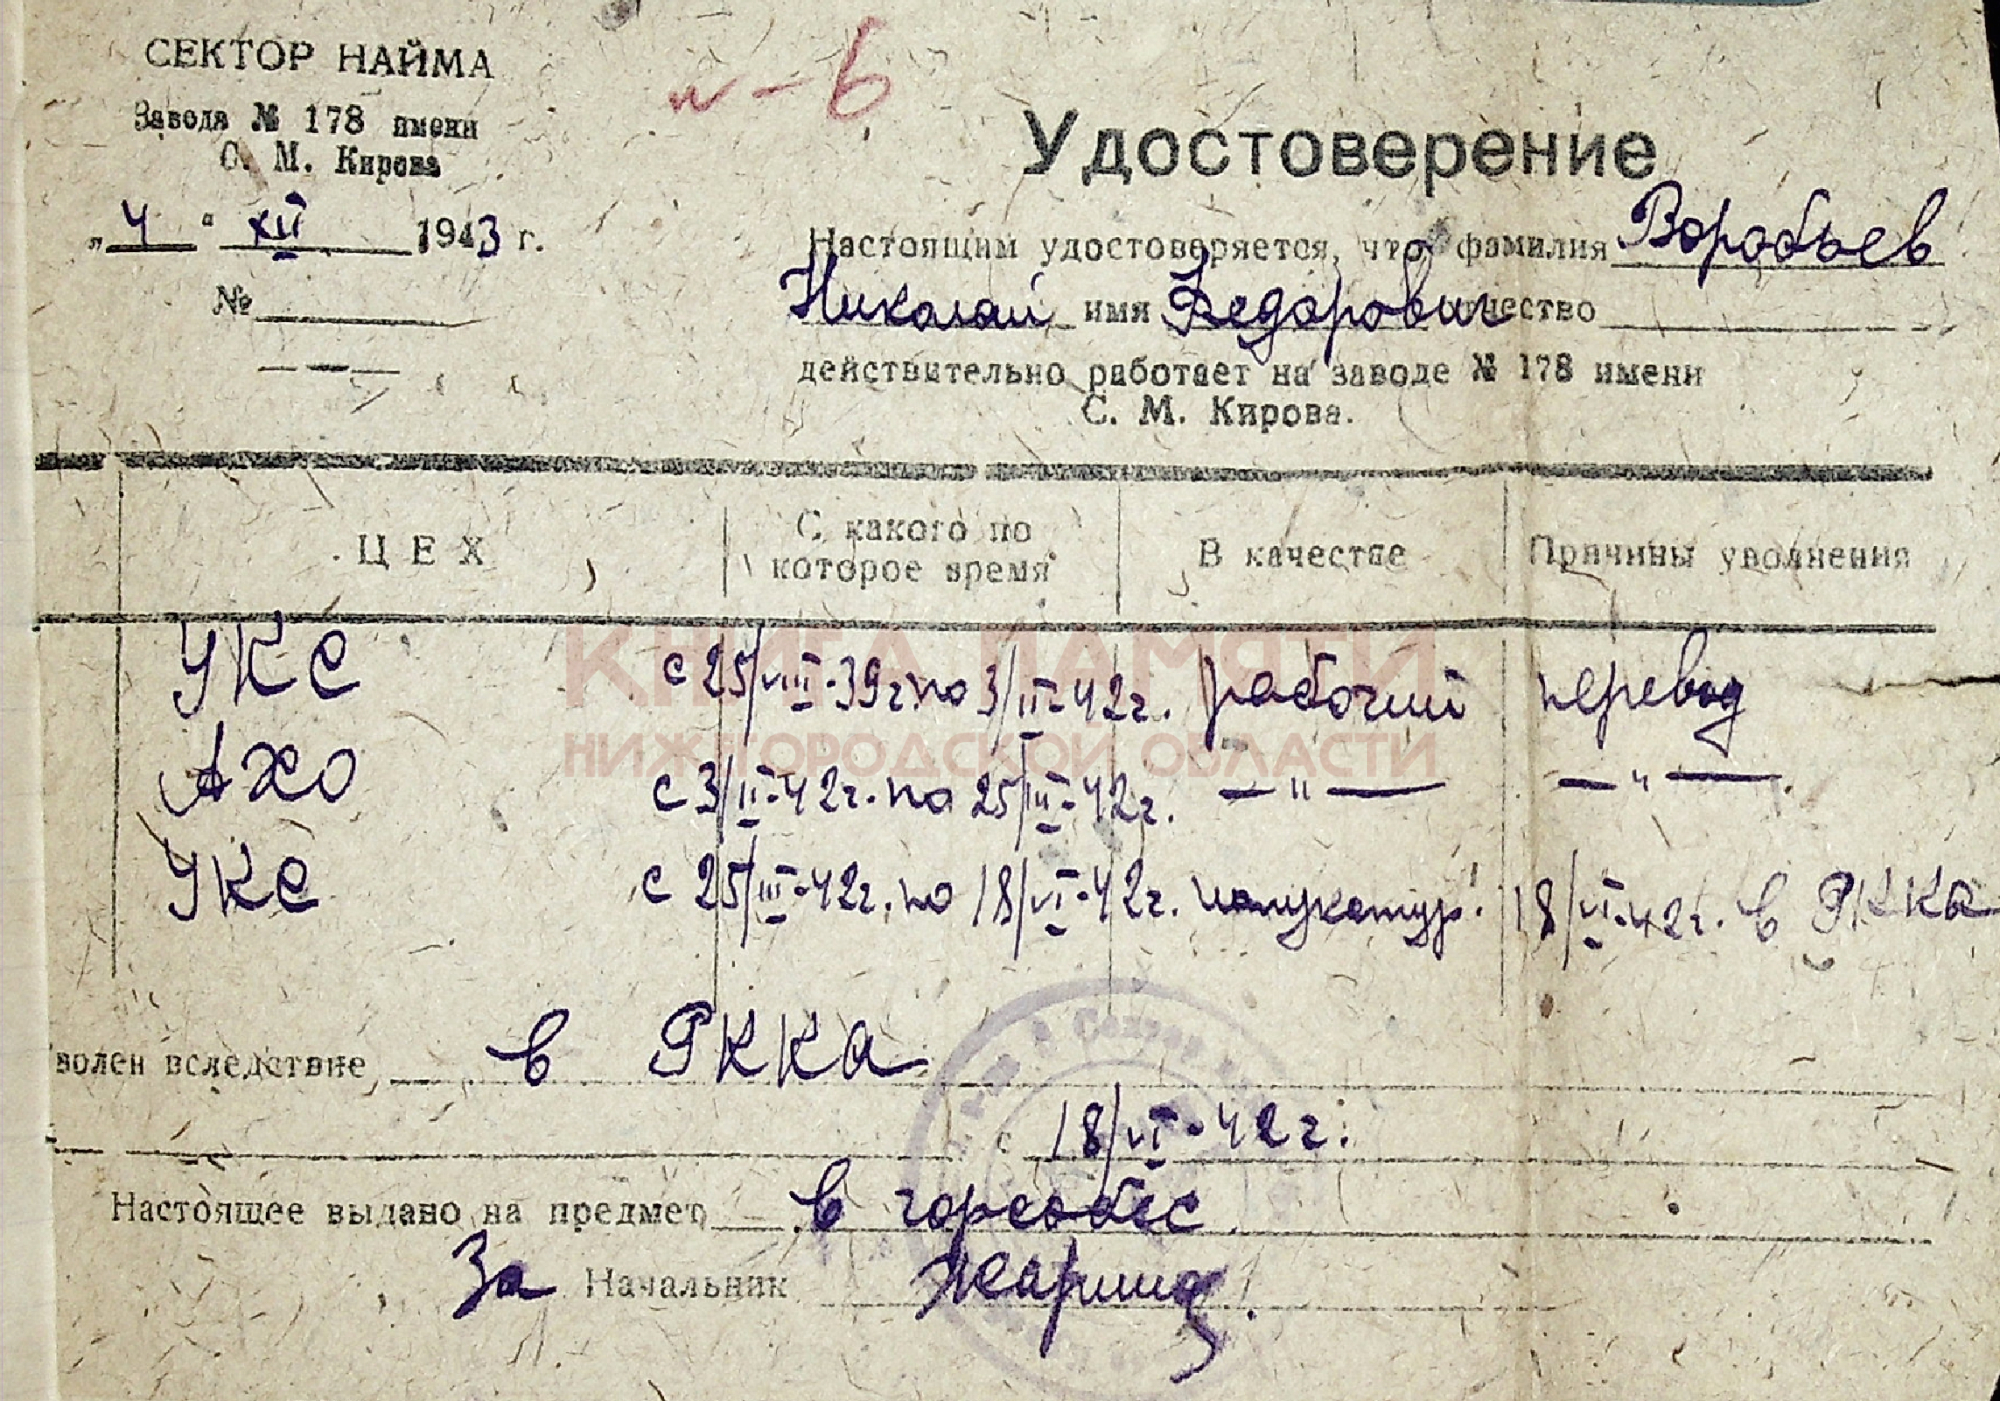 СЕКТОР НАЙМА
Завода № 178 имени
С. М. Кирова
„4“ XII 1943 г.
№
и-6
Удостоверение
Настоящим удостоверяется, что фамилия Воробьев
Николай имя Федорович отчество
действительно работает на заводе № 178 имени
С. М. Кирова.
ЦЕХ
С какого по которое время
В качестве
Причины уволнения
УКС с 25/VIII-39г по 3/II-42г. рабочий перевод
АХО с 3/II-42г. по 25/III-42г. — " — — " —.
УКС с 25/III-42г. по 18/VI-42г. штукатур. 18/VI-42г. в РККА
КНИГА ПАМЯТИ
НИЖЕГОРОДСКОЙ ОБЛАСТИ
волен вследствие в РККА
с 18/VI-42г.
Настоящее выдано на предмет в горсобес
За Начальник